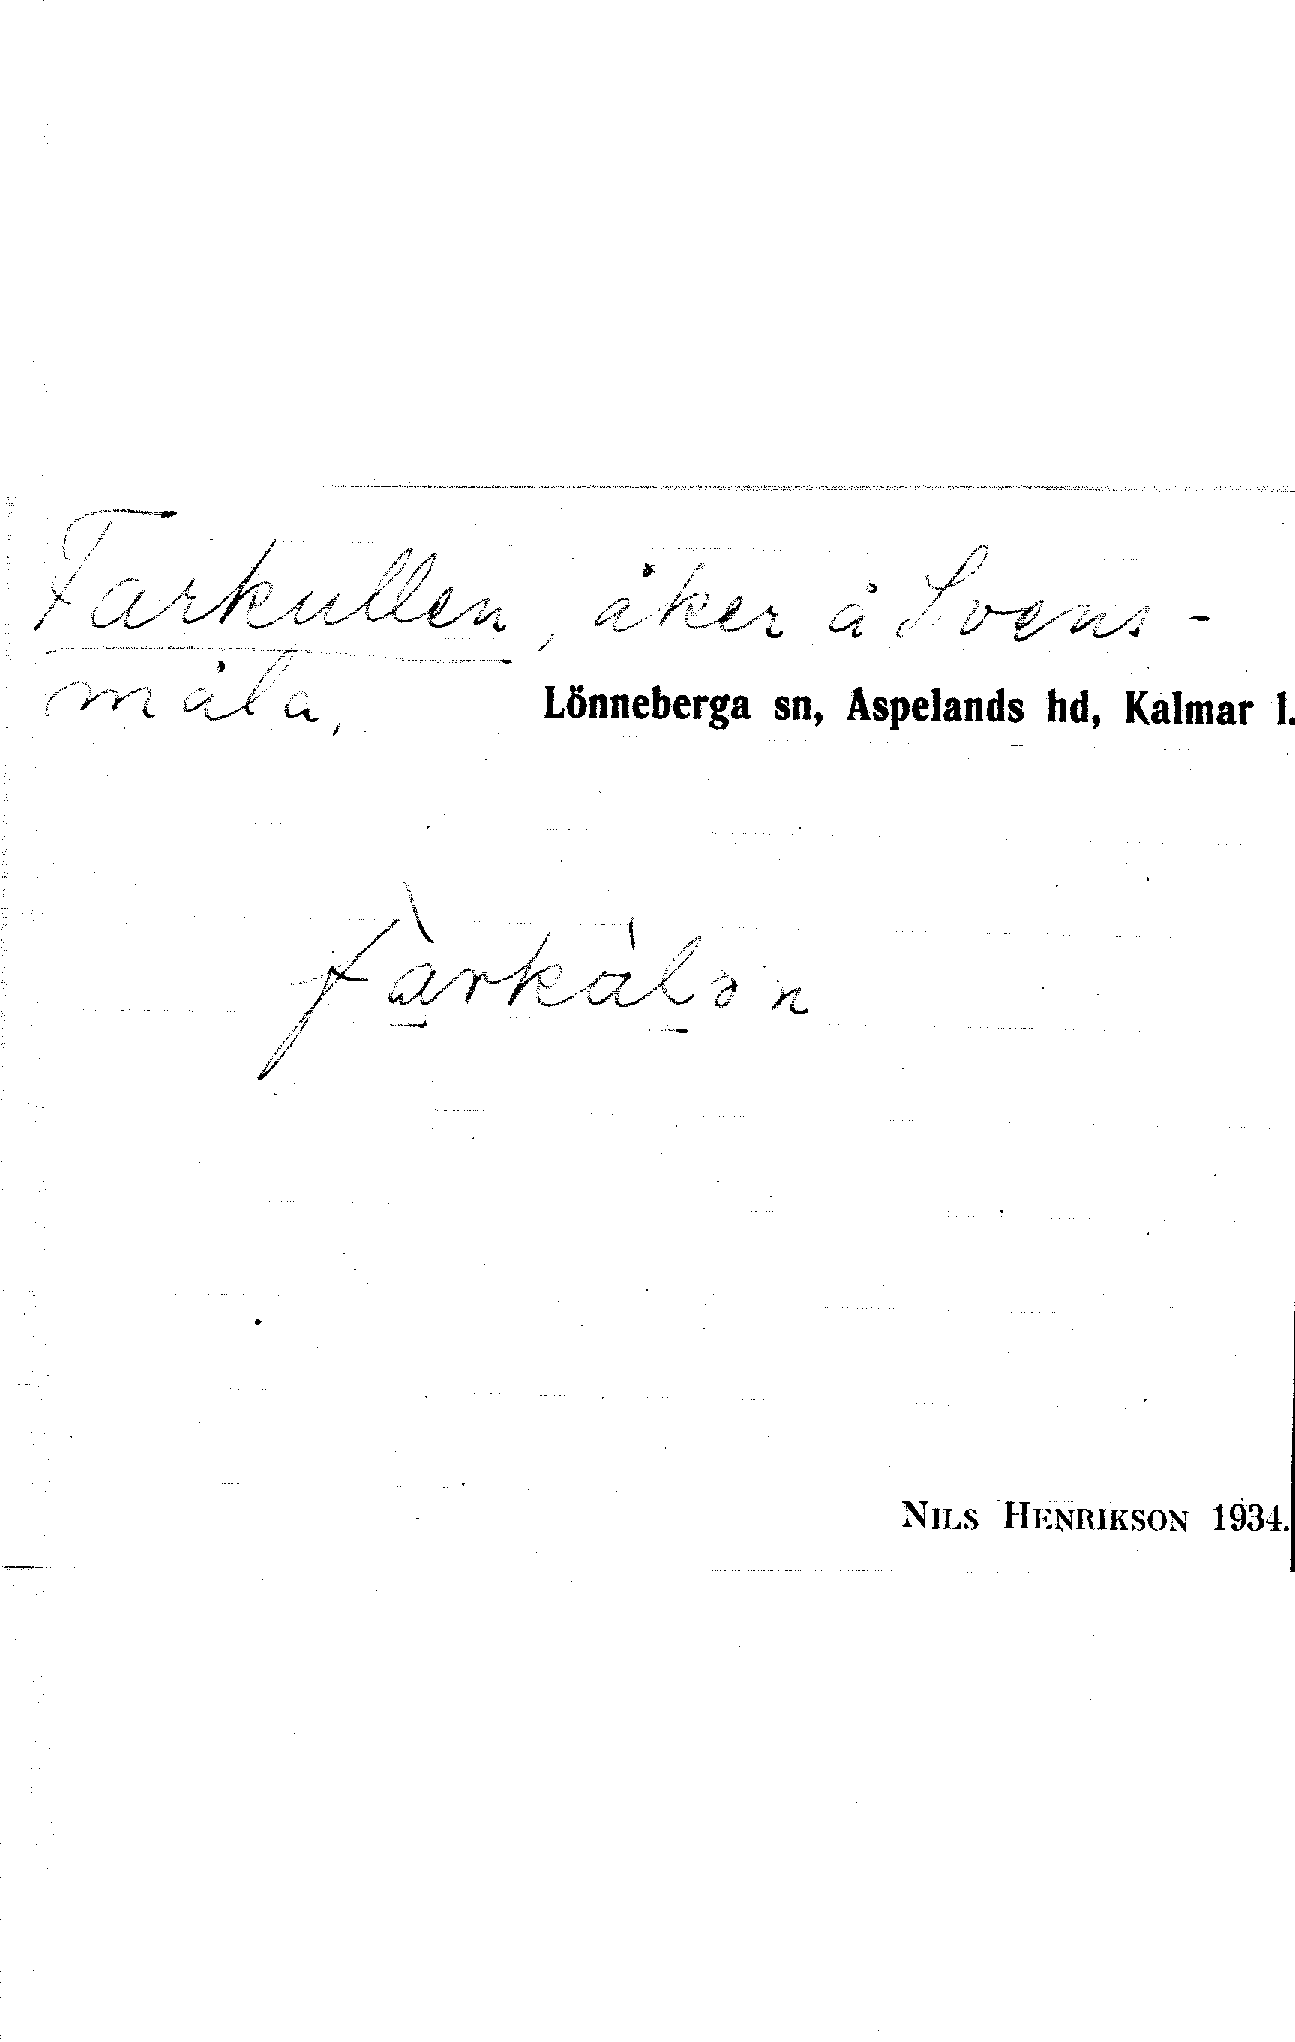 Farkullen, åker å Svens-
måla, Lönneberga sn, Aspelands hd, Kalmar l.
fàrkálən
NILS HENRIKSON 1934.